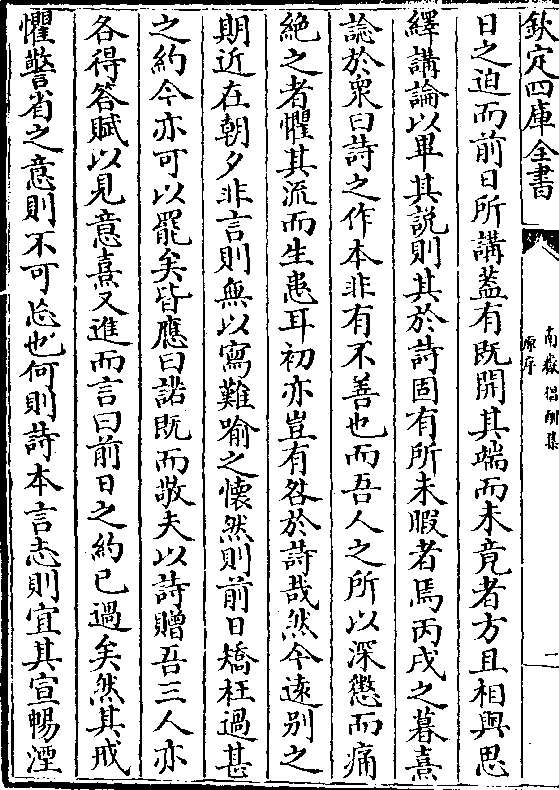 欽定四庫全書
南嶽倡酬集
原序
二
日之迫而前日所講蓋有既開其端而未竟者方且相與思
繹講論以畢其説則其於詩固有所未暇者焉丙戌之暮熹
諗於衆曰詩之作本非有不善也而吾人之所以深懲而痛
絶之者懼其流而生患耳初亦豈有咎於詩哉然今逺别之
期近在朝夕非言則無以寫難喻之懐然則前日矯枉過甚
之約今亦可以罷矣皆應曰諾既而敬夫以詩贈吾三人亦
各得答賦以見意熹又進而言曰前日之約已過矣然其戒
懼警省之意則不可忘也何則詩本言志則宜其宣暢湮